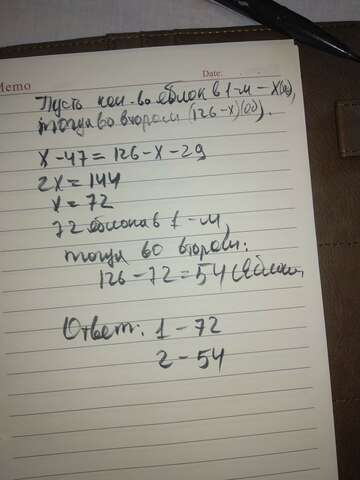 Memo
Date:
Пусть кол-во яблок в 1-м - X(яб),
тогда во втором (126-x)(яб).
x-47=126-x-29
2x=144
x=72
72 яблока в 1-м,
тогда во втором:
126-72=54 (яблок
Ответ: 1-72
2-54